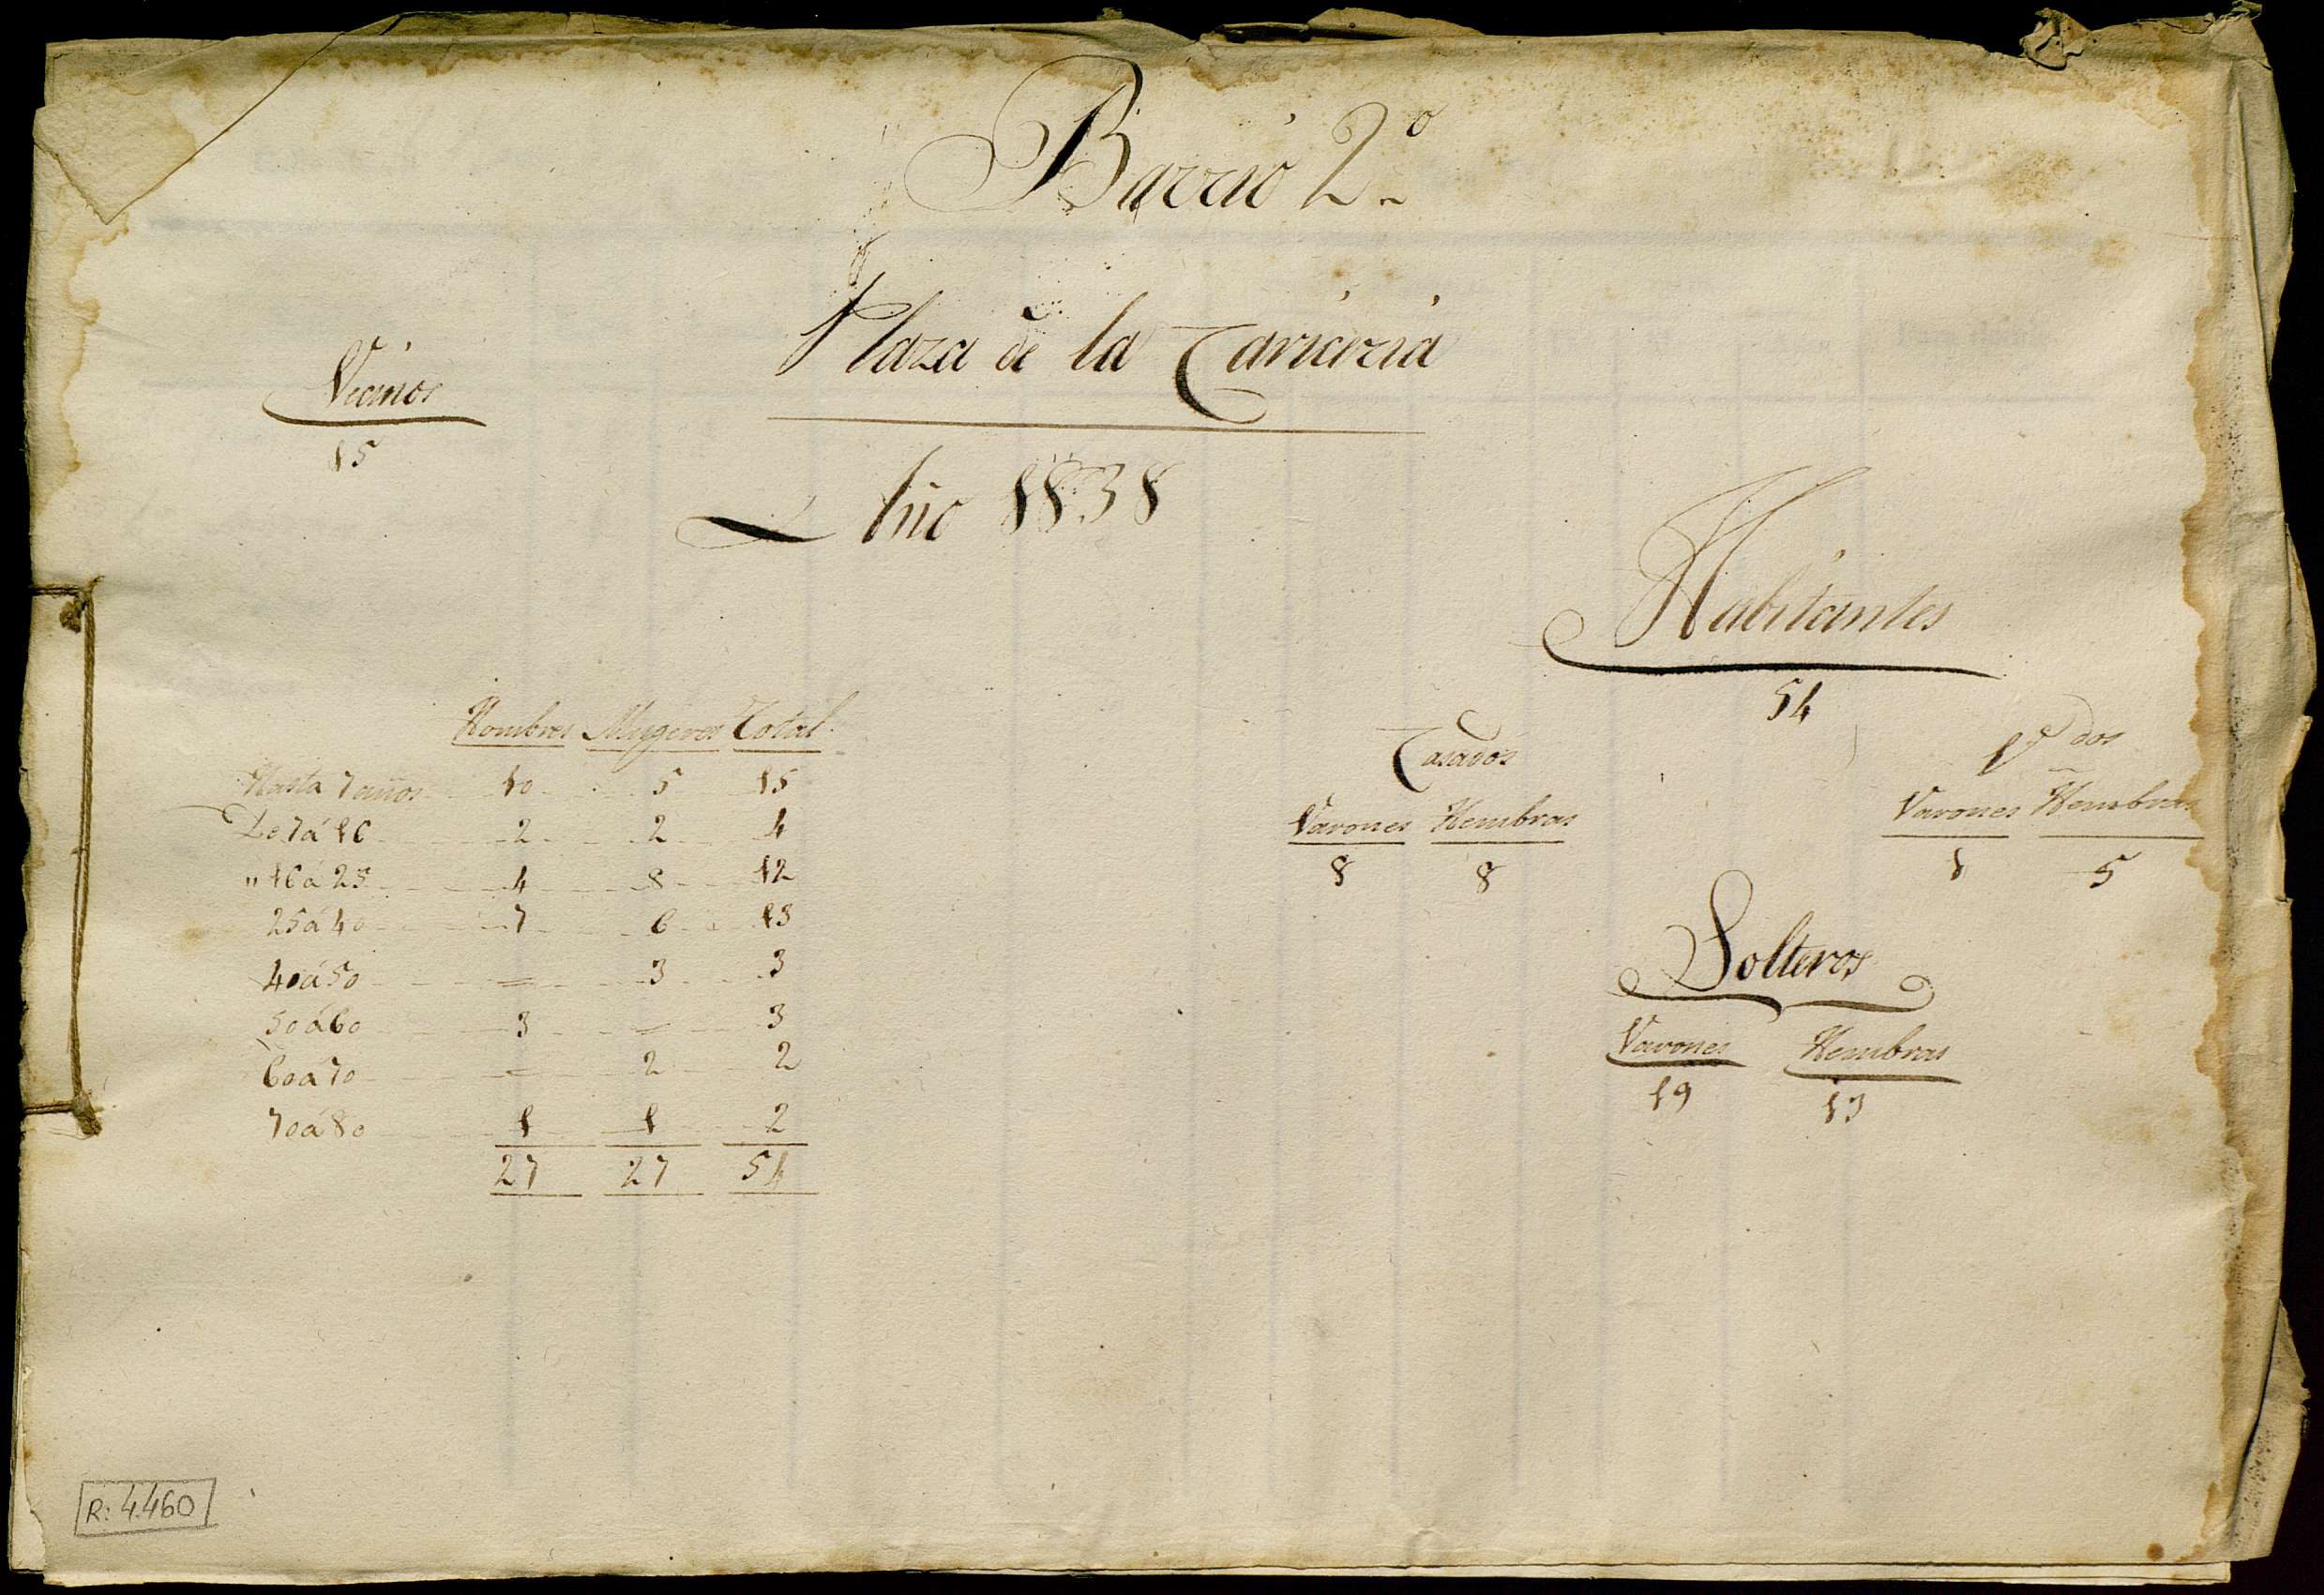 Barrio 2º
Plaza de la
Año 1838
Vecinos
15
Habitantes
54
Hombres Mugeres Total
Hasta 7 años 10 5 15
De 7 á 16 2 2 4
" 16 á 25 4 8 12
25 á 40 7 6 13
40 á 50 = 3 3
50 á 60 3 = 3
60 á 70 = 2 2
70 á 80 1 1 2
27 27 54
Casados
Varones Hembras
8 8
Vdos
Varones Hembras
1 5
Solteros
Varones Hembras
19 13
R: 4.460